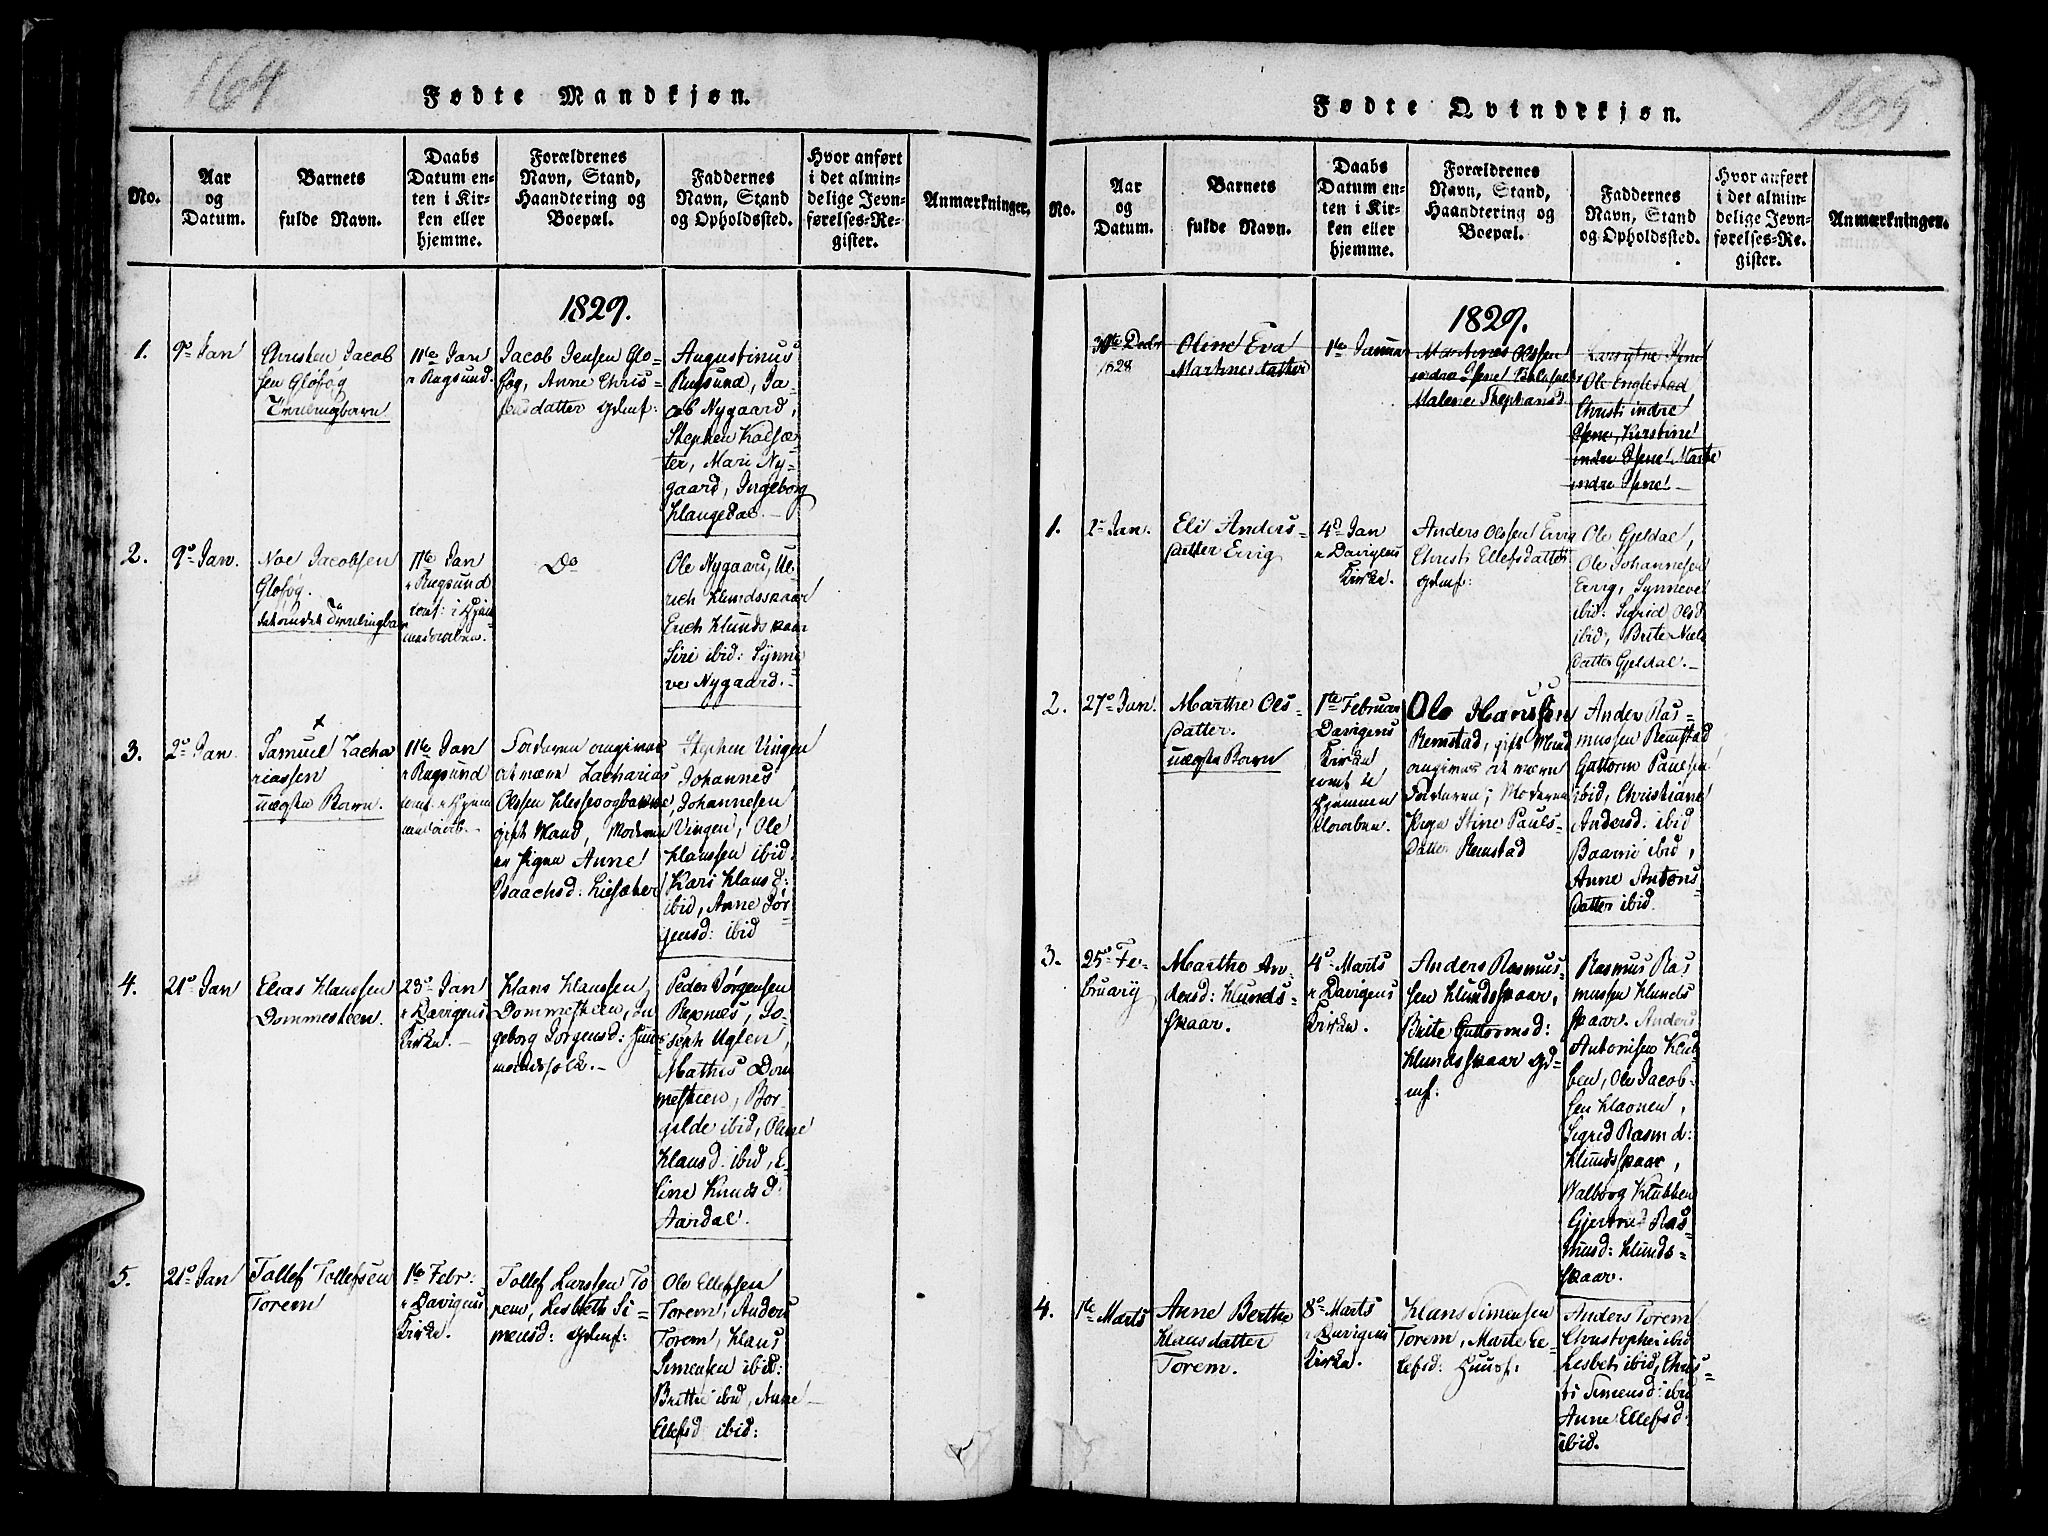 164
Fødte Mandkjøn.
No.
Aar
og
Datum.
Barnets
fulde Navn.
Daabs
Datum en-
ten i Kir-
ken eller
hjemme.
Forældrenes
Navn, Stand,
Haandtering og
Boepæl.
Faddernes
Navn, Stand
og Opholdssted.
Hvor anført
i det almin-
delige Jevn-
førelses-Re-
gister.
Anmærkninger.
1829.
1.
9de Jan
Christen Jacob
sen Gløføg
Tvillingbarn
11te Jan
i Rugsund.
Jacob Jensen Glø-
føg, Anne Chris-
tensdatter
Augustinus
Rugsund, Ja-
cob Nygaard,
Stephen Kolsæ-
ter, Mari Ny-
gaard, Ingeborg
Klaugedal.
2.
9de Jan.
Noe Jacobsen
Gløføg.
Tvillingbar
11te Jan
i Rugsund
Do
Ole Nygaard, Ul-
rich Klundsskaar
Erich Klundskaar
Siri ibid: Synne
ve Nygaard.
3.
2de Jan
Samuel Zacha
riassen
uægte Barn.
11te Jan
i Rugsund
Faderen angives
at være Zacharias
Olssen
gift Mand, Moderen
er Pigen Anne
Isaachsd: Liesæter
Stephen Vingen
Johannes
Johannesen
Vingen, Ole
Klaussen ibid.
Kari Klausd:
ibid, Anne Jør-
gensd: ibid
4.
21de Jan
Elias Klaussen
Dommesteen.
23de Jan
i Davigens
Kirke.
Klaus Klaussen
Dommesteen, In
geborg Jørgensd: Huus
mandsfolk.
Peder Jørgensen
Rexnes, Jo-
seph Uglen,
Mathis Dom
mesteen, Bor-
gilde ibid, Oline
Klausd: ibid, E-
line Knudsd:
Aardal.
5.
21de Jan
Tollef Tollefsen
Torem
1te Febr:
i Davigens
Kirke.
Tollef Larssen To
rem, Lisbeth Si-
mensd:
Ole Ellefsen
Torem, Anders
Torem, Klaus
Simensen ibid:
Brithe ibid, Anne
Ellefsd ibid:
165
Fødte Qvindekjøn.
No.
Aar
og
Datum.
Barnets
fulde Navn.
Daabs
Datum en-
ten i Kir-
ken eller
hjemme.
Forældrenes
Navn, Stand,
Haandtering og
Boepæl.
Faddernes
Navn, Stand
og Opholdssted.
Hvor anført
i det almin-
delige Jevn-
førelses-Re-
gister.
Anmærkninger.
1829.
30te Decbr
1828
Oline Eva
Martinesdatter
1te Janua
Martines Olssen
indre
Malene Stephansd
Ole Englestad
Christi indre
Kirstine
indre Marthe
indre
1.
1de Jan.
Eli Anders-
datter Ervig
4de Jan
i Davigens
Kirke.
Anders Olssen Ervig
Christi Ellefsdatter
Ole Gjeldal,
Ole Johannesen
Ervig, Synneve
ibid: Sigrid Olsd
ibid, Brite Niels
datter Gjeldal.
2.
27de Jan.
Marthe Ols-
datter.
uægte Barn
1te Februar
Davigens
Kirke
Ole Hanssen
Remstad, gift Mand
angives at være
Faderen; Moderen
Stine Pauls-
datter Remstad
Anders Ras-
mussen Remstad
Guttorm Paulsen
ibid, Christiane
Andersd: ibid
ibid,
Anne Antons-
datter ibid.
3.
25de Fe-
bruary
Marthe An-
dersd: Klunds-
skaar.
4de Marts
i Davigens
Kirke.
Anders Rasmus-
sen Klundsskaar,
Brite Guttormsd:
Klundsskaar
Rasmus Ras
mussen Klunds
skaar. Anders
Antonisen Klub-
ben, Ole Jacob-
sen
Sigrid Rasmd:
Klundsskaar,
Walborg Klubben
Gjertrud Ras
musd: Klunds-
skaar.
4.
1te Marts
Anne Berthe
Klausdatter
Torem.
8de Marts
i Davigens
Kirke.
Klaus Simensen
Torem, Marte El-
lefsd: Huusf:
Anders Torem
Christopher ibid
Lisbet ibid, Chris-
ti Simensd: ibid
Anne Ellefsd:
ibid.